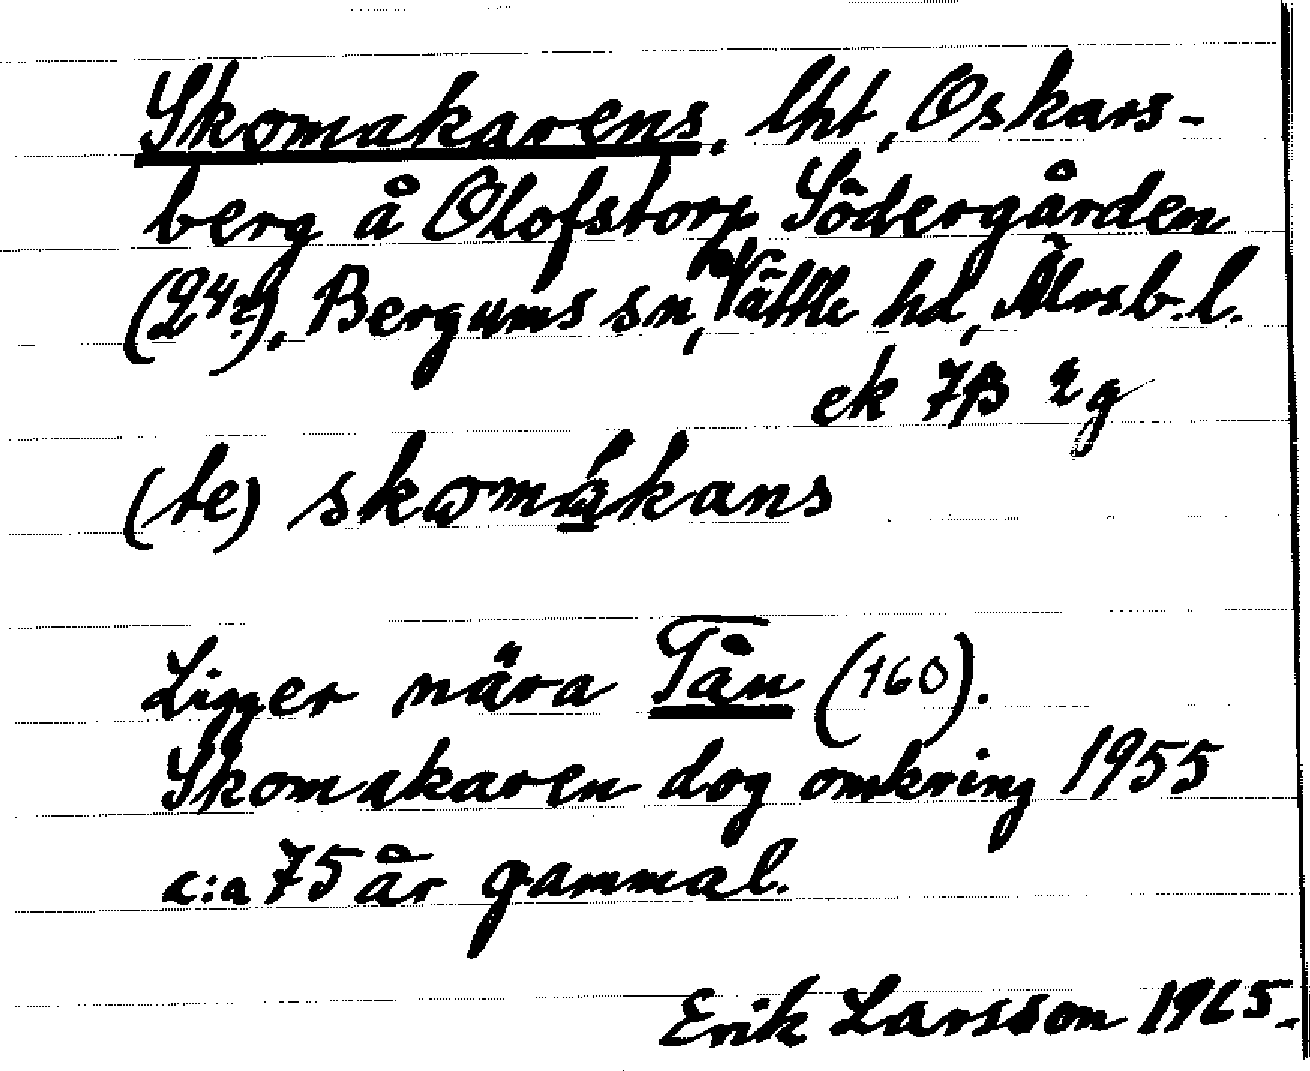 Skomakarens, lht, Oskars-
berg å Olofstorp Södergården
(24), Bergums sn, Vättle hd, Älvsb. l.
ek 7B 2g
(te) skomakans
Ligger nära Tån (160).
Skomakaren dog omkring 1955
c:a 75 år gammal.
Erik Larsson 1965.